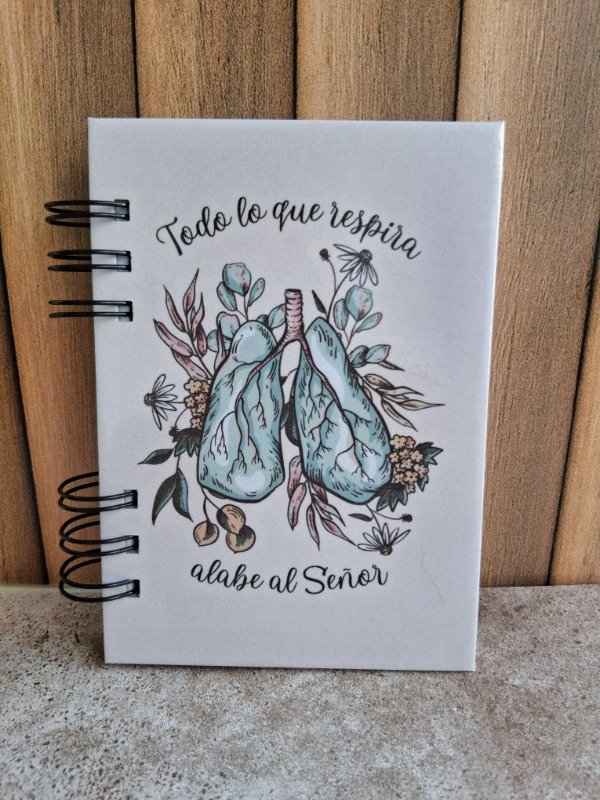 Todo lo que respira
alabe al Señor